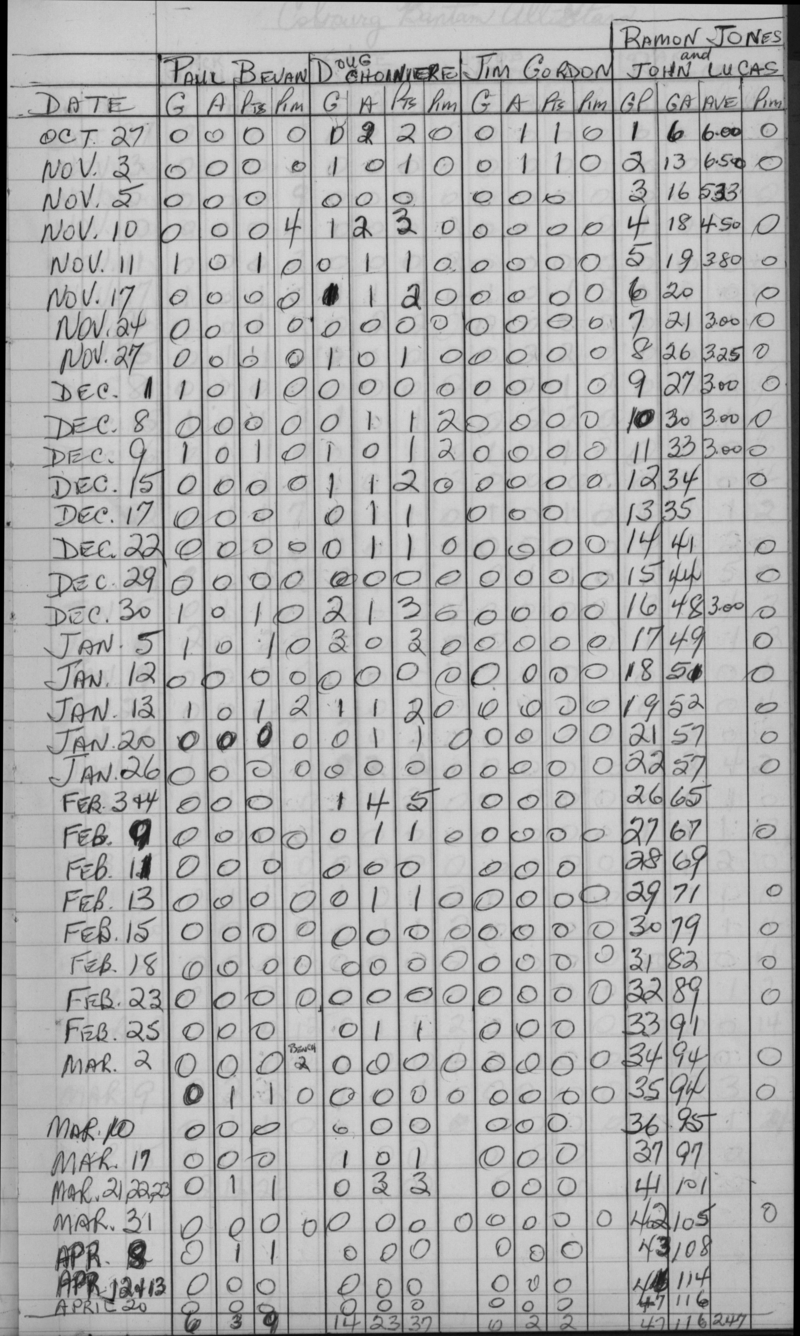 Cobourg Bantam All-Stars
RAMON JONES
PAUL BEVAN DOUG CHOINIERE JIM GORDON and JOHN LUCAS
DATE G A Pts Pim G A Pts Pim G A Pts Pim GP GA AVE Pim
OCT. 27 0 0 0 0 0 2 2 0 0 1 1 0 1 6 6.00 0
NOV. 3 0 0 0 0 1 0 1 0 0 1 1 0 2 13 6.50 0
NOV. 5 0 0 0 0 0 0 0 0 0 3 16 533
NOV. 10 0 0 0 4 1 2 3 0 0 0 0 0 4 18 450 0
NOV. 11 1 0 1 0 0 1 1 0 0 0 0 0 5 19 380 0
NOV. 17 0 0 0 0 1 1 2 0 0 0 0 0 6 20 0
NOV. 24 0 0 0 0 0 0 0 0 0 0 0 0 7 21 3.00 0
NOV. 27 0 0 0 0 1 0 1 0 0 0 0 0 8 26 325 0
DEC. 1 1 0 1 0 0 0 0 0 0 0 0 0 9 27 3.00 0
DEC. 8 0 0 0 0 0 1 1 2 0 0 0 0 10 30 3.00 0
DEC. 9 1 0 1 0 1 0 1 2 0 0 0 0 11 33 3.00 0
DEC. 15 0 0 0 0 1 1 2 0 0 0 0 0 12 34 0
DEC. 17 0 0 0 0 1 1 0 0 0 13 35
DEC. 22 0 0 0 0 0 1 1 0 0 0 0 0 14 41 0
DEC. 29 0 0 0 0 0 0 0 0 0 0 0 0 15 44 0
DEC. 30 1 0 1 0 2 1 3 0 0 0 0 0 16 48 3.00 0
JAN. 5 1 0 1 0 3 0 3 0 0 0 0 0 17 49 0
JAN. 12 0 0 0 0 0 0 0 0 0 0 0 0 18 51 0
JAN. 13 1 0 1 2 1 1 2 0 0 0 0 0 19 52 0
JAN. 20 0 0 0 0 0 1 1 0 0 0 0 0 21 57 0
JAN. 26 0 0 0 0 0 0 0 0 0 0 0 0 22 57 0
FEB. 3+4 0 0 0 1 4 5 0 0 0 26 65
FEB. 9 0 0 0 0 0 1 1 0 0 0 0 0 27 67 0
FEB. 11 0 0 0 0 0 0 0 0 0 28 69
FEB. 13 0 0 0 0 0 1 1 0 0 0 0 0 29 71 0
FEB. 15 0 0 0 0 0 0 0 0 0 0 0 0 30 79 0
FEB. 18 0 0 0 0 0 0 0 0 0 0 0 0 31 82 0
FEB. 23 0 0 0 0 0 0 0 0 0 0 0 0 32 89 0
FEB. 25 0 0 0 0 1 1 0 0 0 33 91
MAR. 2 0 0 0 BENCH 2 0 0 0 0 0 0 0 0 34 94 0
MAR 9 0 1 1 0 0 0 0 0 0 0 0 0 35 94 0
MAR. 10 0 0 0 0 0 0 0 0 0 36 95
MAR. 17 0 0 0 1 0 1 0 0 0 37 97
MAR. 21,22,23 0 1 1 0 3 3 0 0 0 41 101
MAR. 31 0 0 0 0 0 0 0 0 0 0 0 0 42 105 0
APR. 8 0 1 1 0 0 0 0 0 0 43 108
APR. 12+13 0 0 0 0 0 0 0 0 0 114
APRIL 20 0 0 0 0 0 0 0 0 0 47 116
6 3 9 14 23 37 0 2 2 47 116 247